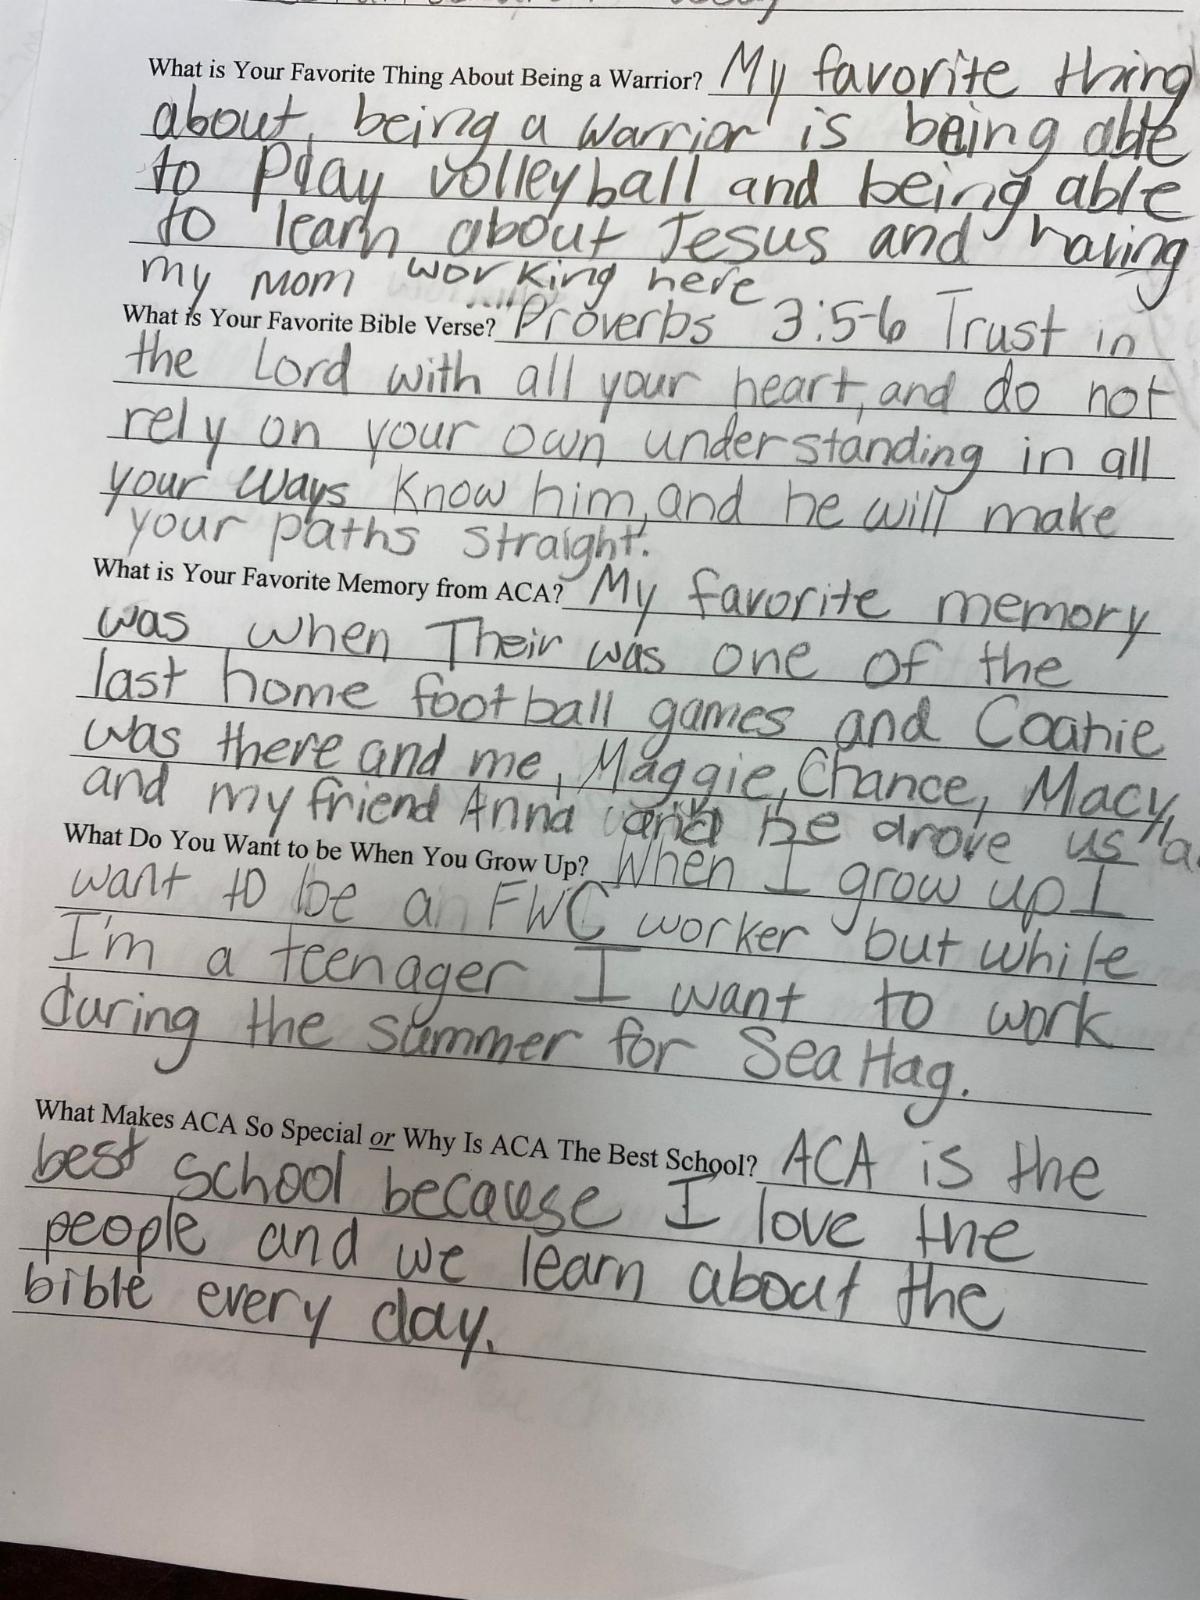 What is Your Favorite Thing About Being a Warrior? My favorite thing
about being a warrior is being able
to play volleyball and being able
to learn about Jesus and having
my mom working here
What is Your Favorite Bible Verse? Proverbs 3:5-6 Trust in
the Lord with all your heart, and do not
rely on your own understanding in all
your ways know him, and he will make
your paths straight.
What is Your Favorite Memory from ACA? My favorite memory
was when Their was one of the
last home football games and Coahie
was there and me, Maggie, Chance, Macy,
and my friend Anna and he drove us
What Do You Want to be When You Grow Up? When I grow up I
want to be an FWC worker but while
I'm a teenager I want to work
during the summer for Sea Hag.
What Makes ACA So Special or Why Is ACA The Best School? ACA is the
best school because I love the
people and we learn about the
bible every day.